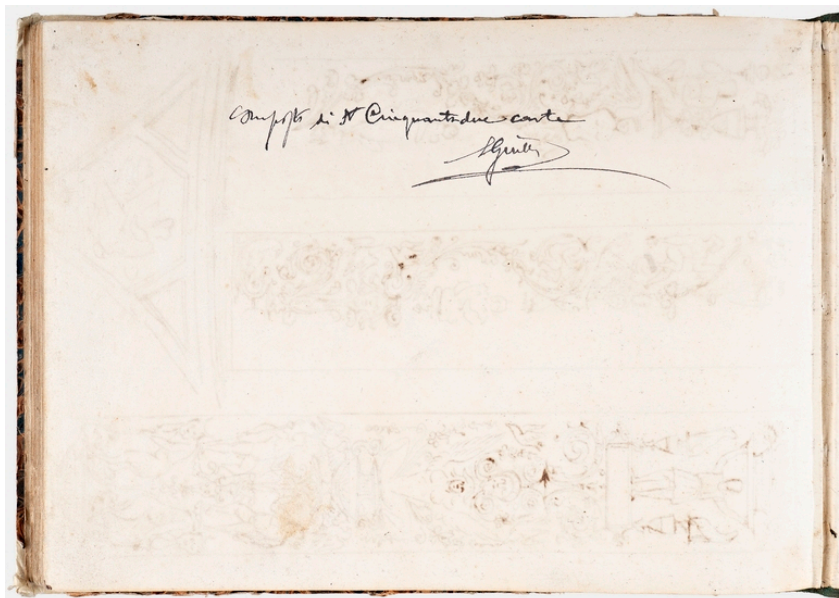 Composto di N° Cinquantadue carte